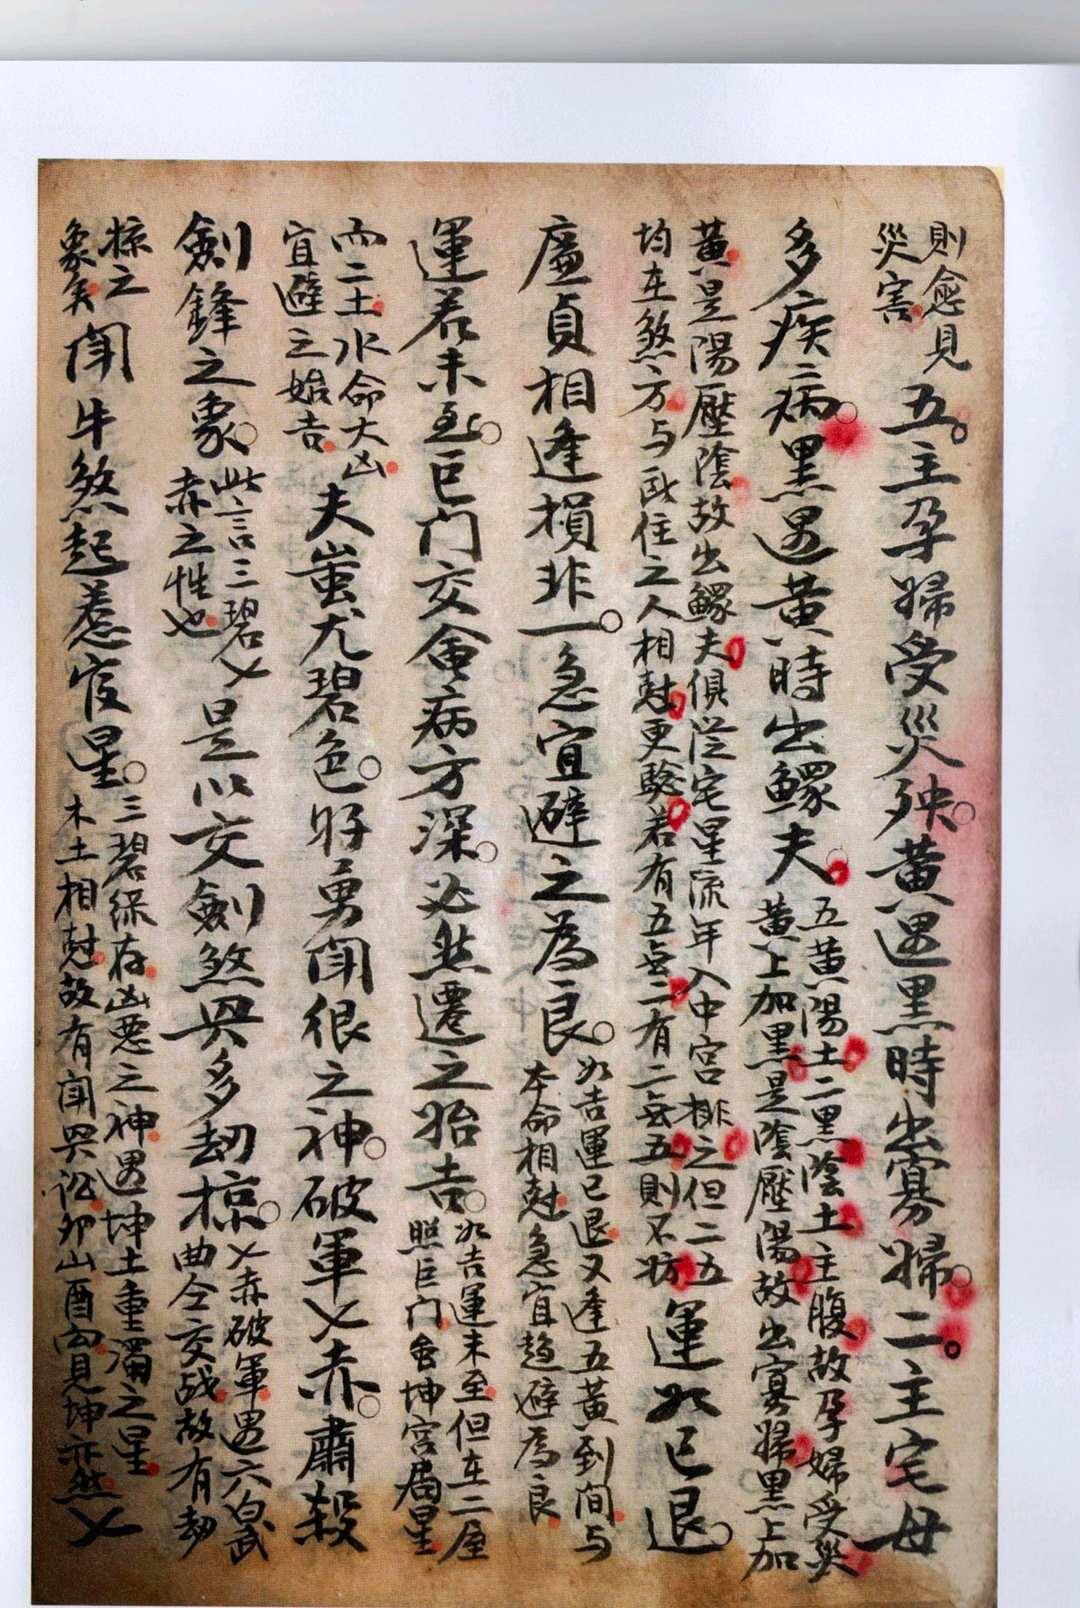 則愈見
災害
五。主孕婦受災殃。黃遇黑時出寡婦。二。主宅母
多疾病。黑遇黃時出鰥夫。
五黃陽土二黑陰土主腹故孕婦受災
黃上加黑是陰壓陽故出寡婦黑上加
黃是陽壓陰故出鰥夫俱從宅星流年入中宮排之但二五
均在煞方与所住之人相尅更驗若有五無二有二無五則不妨
運如已退。
廉貞相逢損非一。急宜避之為良。
如吉運已退又逢五黃到間与
本命相尅急宜趨避為良
運若未至。巨门交會病方深。必然遷之始吉。
如吉運未至但在二屋
照巨门會坤宮局星
而二土水命大凶
宜避之始吉
夫蚩尤碧色。好勇鬥很之神。破軍乂赤。肅殺
劍鋒之象。
此言三碧乂
赤之性也
是以交劍煞興多劫掠。
乂赤破軍遇六白武
曲仝交战故有劫
掠之
象矣
鬥牛煞起惹官星。
三碧綠存凶恶之神遇坤土重濁之星
木土相尅故有鬥興訟卯山酉向見坤亦然
乂